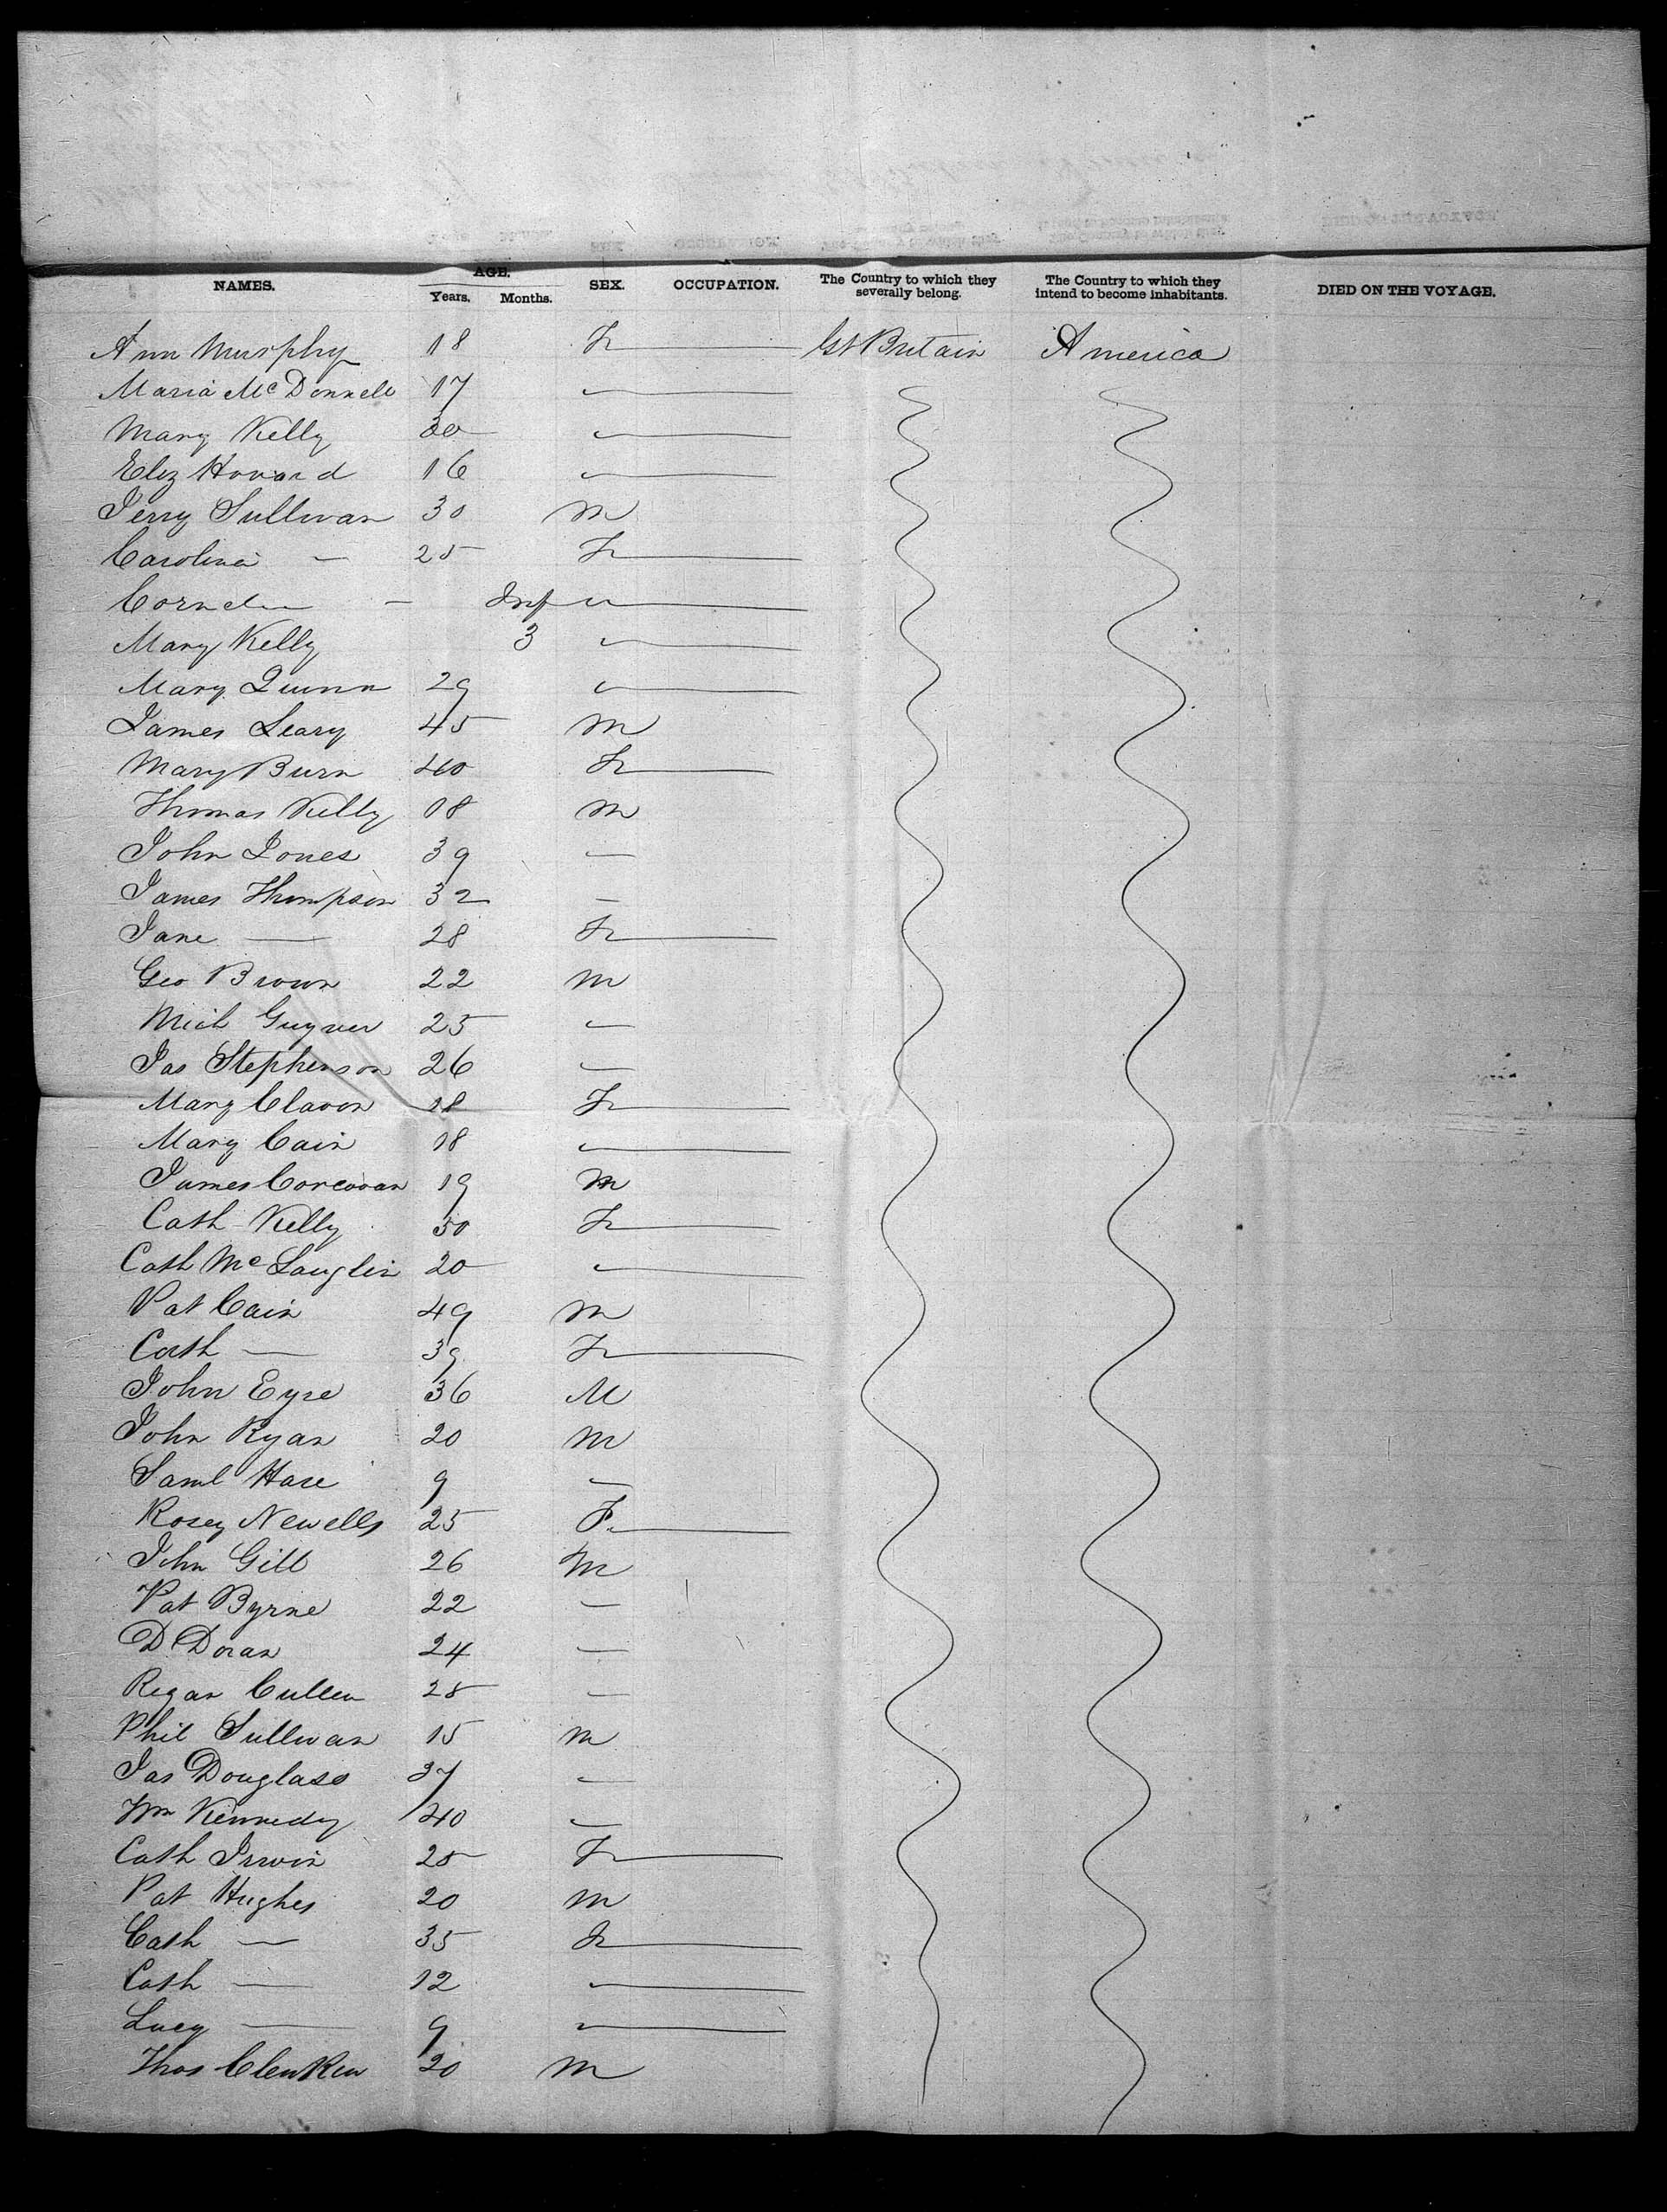 NAMES. AGE. Years. Months. SEX. OCCUPATION. The Country to which they severally belong. The Country to which they intend to become inhabitants. DIED ON THE VOYAGE.
Ann Murphy 18 F Gt Britain America
Maria McDonnell 17
Mary Kelly 30
Eliz Howard 16
Jerry Sullivan 30 M
Carolina — 25 F
— Inf
Mary Kelly 3
Mary Quinn 29
James Leary 45 M
Mary Burn 40 F
Thomas Kelly 18 M
John Jones 39 —
James Thompson 32 —
Jane — 28 F
Geo Brown 22 M
Mich 25
Jas Stephenson 26
Mary 18 F
Mary Cain 18
James Corcoran 19 M
Cath Kelly 30 F
Cath McLauglin 20
Pat Cain 49 M
Cath — 39 F
John Eyre 36 M
John Ryan 20 M
Saml Hare 9 —
Rosey Newells 25 F
John Gill 26 M
Pat Byrne 22 —
D Doran 24 —
Regan Cullen 28 —
Phil Sullivan 15 M
Jas Douglass 37 —
Wm Kennedy 40
Cath Irwin 25 F
Pat Hughes 20 M
Cath — 35 F
Cath — 12
Lucy — 9
Thos 20 M